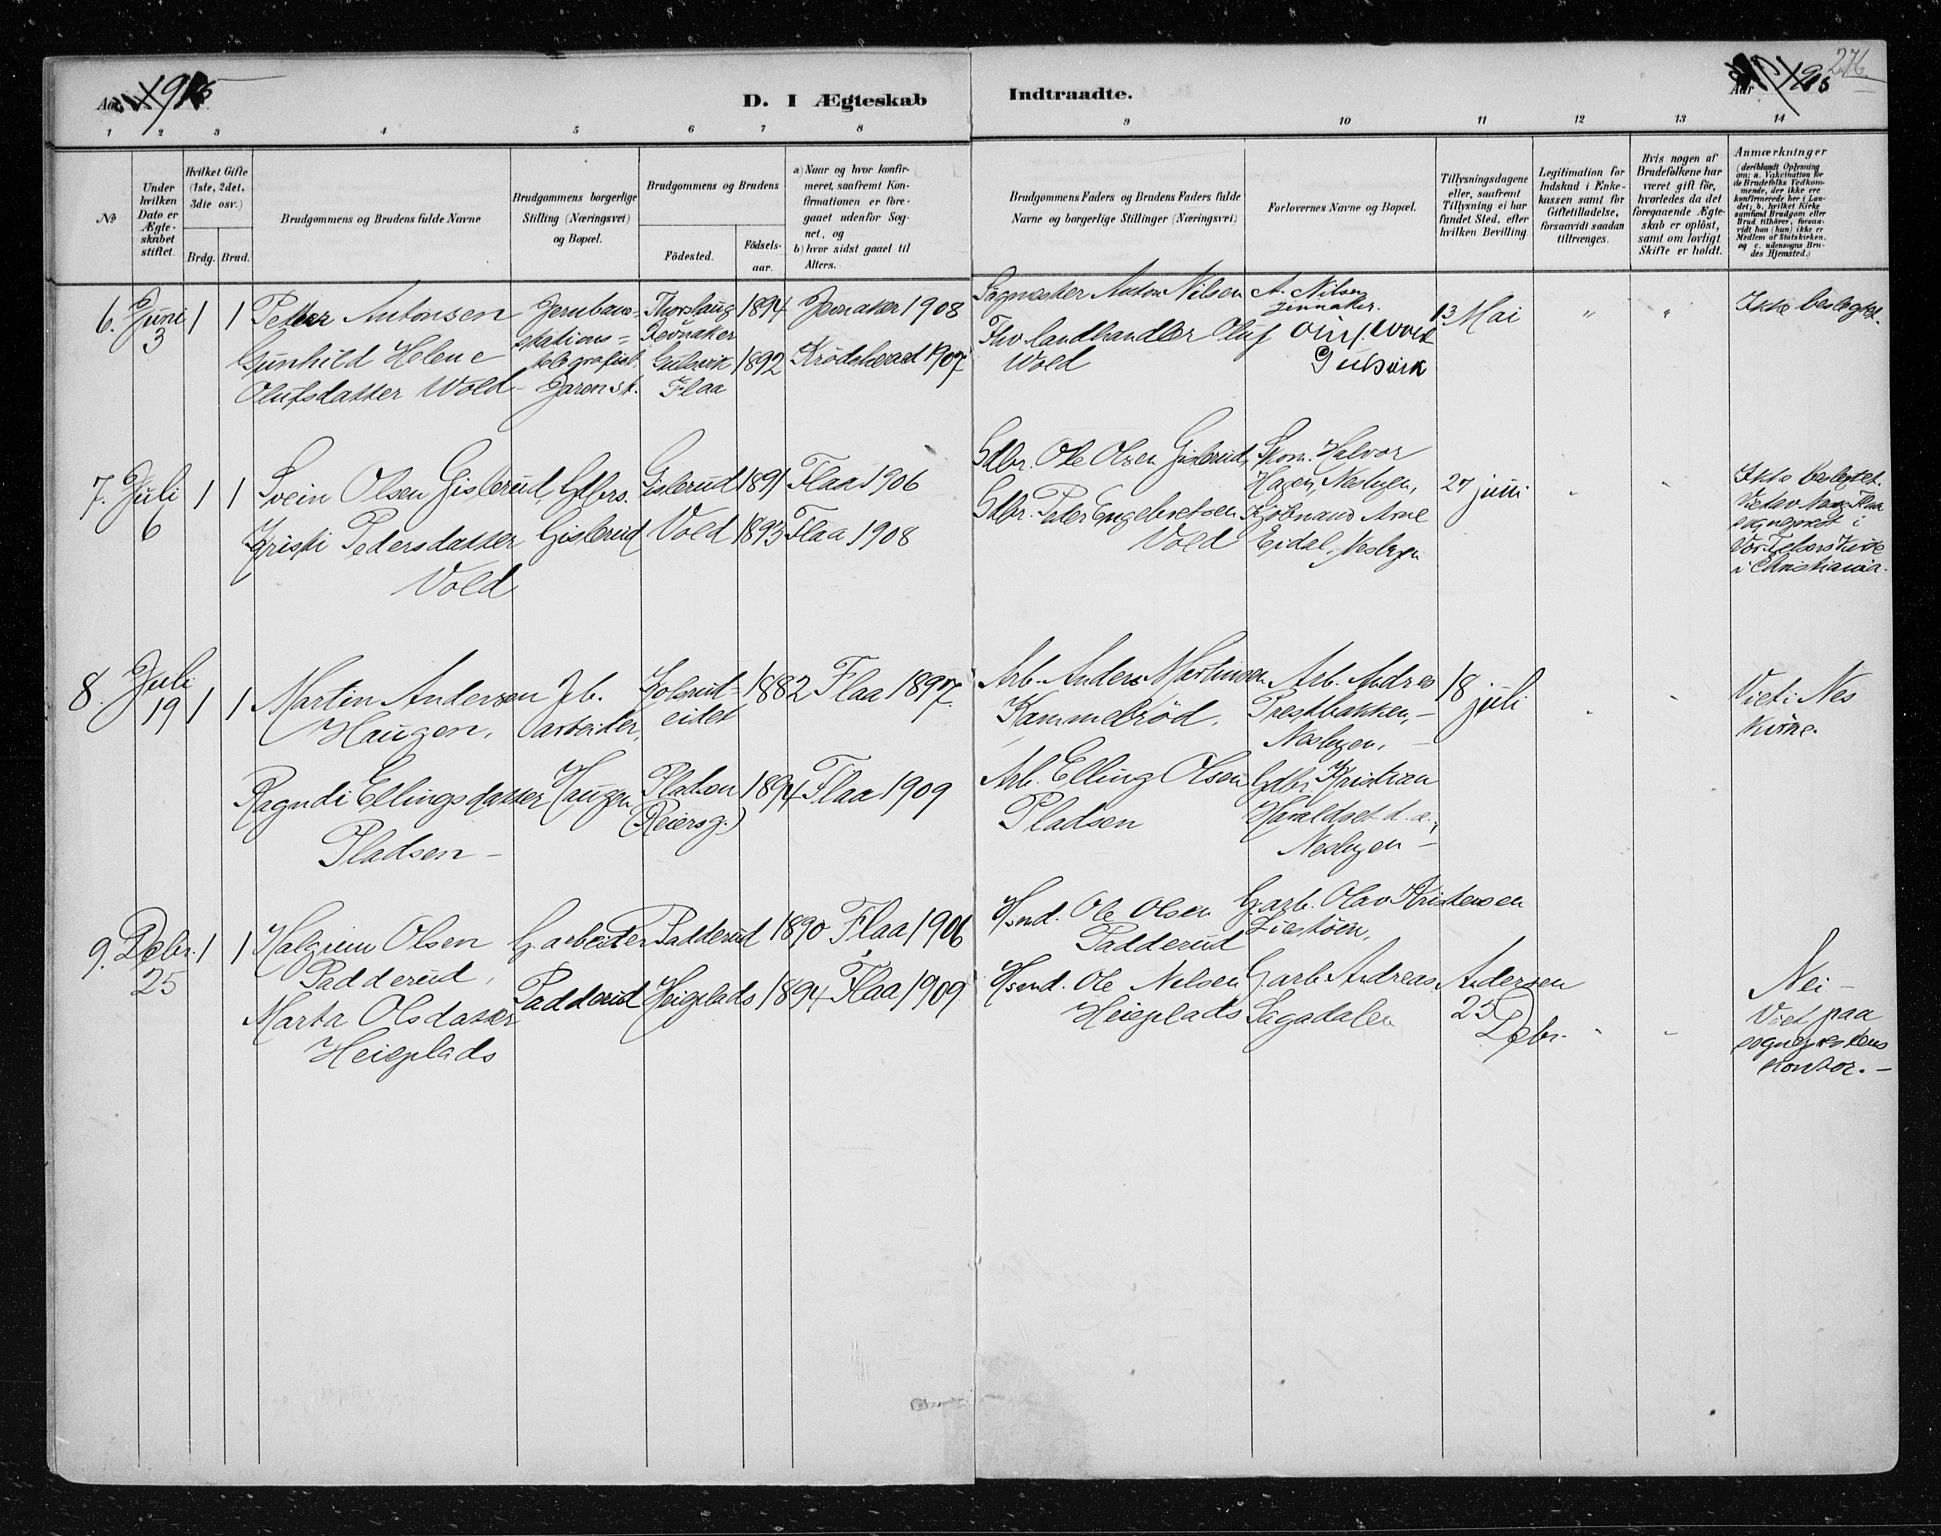 Aar 1915
D. I Ægteskab Indtraadte.
Aar 1915
276
1 2 3 4 5 6 7 8 9 10 11 12 13 14
№
Under hvilken Dato er Ægteskabet stiftet
Hvilket Gifte (1ste, 2det, 3die osv.)
Brdg. Brud.
Brudgommens og Brudens fulde Navne
Brudgommens borgerlige Stilling (Næringsvei) og Bopæl.
Brudgommens og Brudens
Födested.
Födselsaar.
a) Naar og hvor konfirmeret, saafremt Konfirmationen er foregaaet udenfor Sognet, og
b) hvor sidst gaaet til Alters.
Brudgommens Faders og Brudens Faders fulde Navne og borgerlige Stillinger (Næringsvei)
Forlovernes Navne og Bopæl.
Tillysningsdagene eller, saafremt Tillysning ei har fundet Sted, efter hvilken Bevilling
Legitimation for Indskud i Enkekassen samt for Giftetilladelse, forsaavidt saadan tiltrænges.
Hvis nogen af Brudefolkene har været gift för, hvorledes da det foregaaende Ægteskab er oplöst, samt om lovligt Skifte er holdt.
Anmærkninger
(deriblandt Oplysning om: a. Vakcination for de Brudefolks Vedkommende, der ikke ere konfirmerede her i Landet; b. hvilket Kirkesamfund Brudgom eller Brud tilhörer, forsaavidt han (hun) ikke er Medlem af Statskirken, og c. udensogns Brudes Hjemsted.)
6. Juni 3 1 1
Peter Antonsen
Gunhild Helene
Olufsdatter Wold
Jernbane-
stations=
telegrafist
Jaren st.
Jevnaker
1894
Jevnaker 1908
Gulsvik
Flaa
1892
Krödsherad 1907
Sagmester Anton Nilsen
Fhv. landhandler Oluf
Wold
A. Nilsen
Jevnaker.
Oluf Wold
Gulsvik
13 Mai
" "
Ikke beslegtet.
7. Juli 6 1 1
Svein Olsen Gislerud, Gbrs.
Kristi Pedersdatter Gislerud
Vold
Gislerud 1891 Flaa 1906
Vold 1893 Flaa 1908
Gdbr. Ole Olsen Gislerud
Gdbr. Peter Engebretsen
Vold
Skom. Halvor
Hagen, Nesbyen,
Kjöbmand Arne
Eidal, Nesbyen
27 juni
Ikke beslegtet.
sogneprest i
Vor Frelsers Kirke
i Christiania.
8. Juli 19 1 1
Martin Andersen
Haugen,
Jb.
arbeider,
Haugen
Kolsrud-
eidet
1882 Flaa 1897.
Ragndi Ellingsdatter
Pladsen -
Pladsen
(Reiersg.)
1894 Flaa 1909
Arb. Anders Martinsen
Kammebröd.
Arb. Elling Olsen
Pladsen
Arb. Andreas
Prestbakken, -
Nesbyen, -
Gdbr. Kristian
Haraldset d. e.,
Nesbyen -
18 juli
Viet i Nes
Kirke.
9. Debr. 25 1 1
Halgrim Olsen
Padderud,
Marta Olsdatter
Heieplads
G. arbeider
Padderud
Padderud 1890 Flaa 1906
Heieplads 1894 Flaa 1909
Hsmd. Ole Olsen
Padderud
Hsmd. Ole Nilsen
Heieplads
G. arb. Olav Kristensen
Liestöen,
G. arb. Andreas Andersen
Sagadalen
25 Debr.
Nei -
Viet paa
sogneprestens
kontor. -